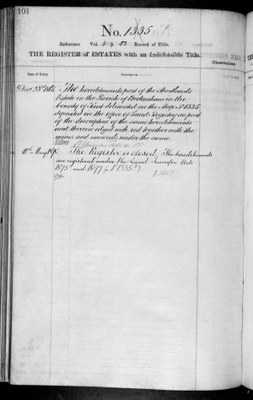 101
No. 1335.
Reference Vol. 4 p. 82 Record of Title.
THE REGISTER of ESTATES with an Indefeasible Title.
Date of Entry. Description Observations
The hereditaments part of the
Estate in the Parish of in the
County of Kent delineated on the Map No 1335
deposited in the Office of Land Registry as part
of the description of the same hereditaments
and therein edged with red together with the
mines and minerals under the same
The Register is closed. The hereditaments
are registered under the Land Transfer Acts
1875 and 1897